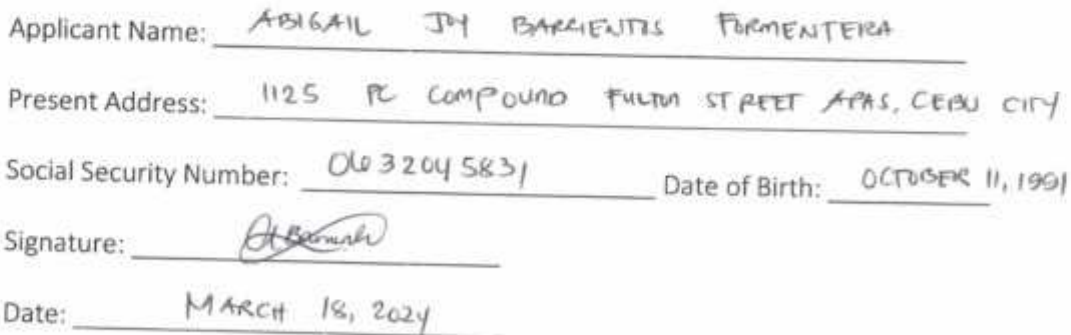 Applicant Name: ABIGAIL JOY BARRIENTOS FORMENTERA
Present Address: 1125 PC COMPOUND FULTON STREET APAS, CEBU CITY
Social Security Number: 0632045831 Date of Birth: OCTOBER 11, 1991
Signature:
Date: MARCH 18, 2024